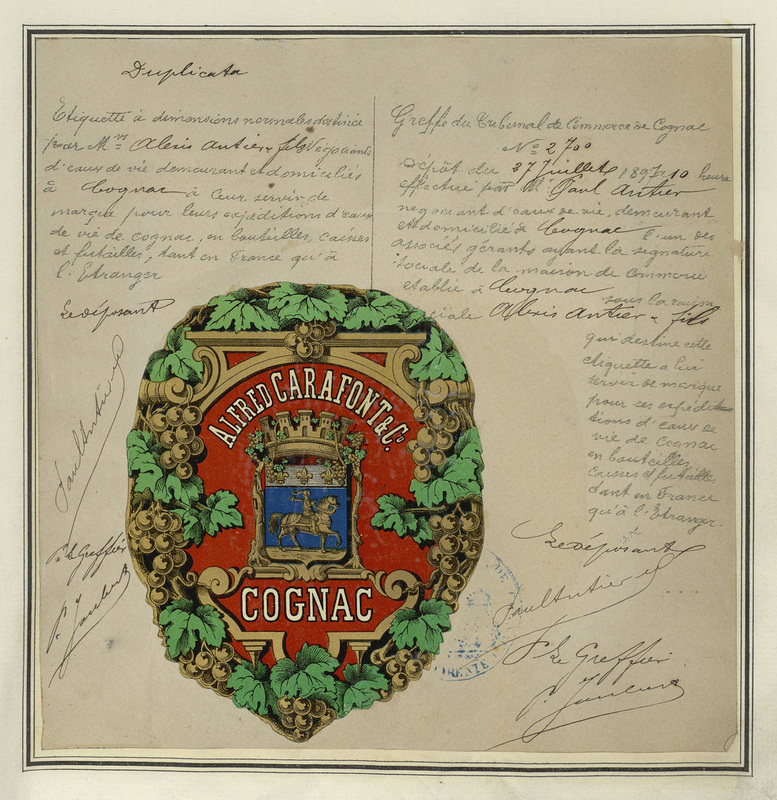 Duplicata
Etiquette à dimensions normales destinée
par Mrs Alexis Antier & fils Négociants
d'eaux de vie demeurant et domiciliés
à Cognac à leur servir de
marque pour leurs expéditions d'eaux
de vie de cognac, en bouteilles, caisses
et futailles, tant en France qu'à
l'Etranger
Le déposant
Paul Antier
P. Le Greffier
Greffe du Tribunal de Commerce de Cognac
No 2700
Dépôt du 27 juillet 1897 10 heures
effectué par M. Paul Antier
négociant d'eaux de vie, demeurant
et domicilié à Cognac l'un des
associés gérants ayant la signature
sociale de la maison de commerce
établie à Cognac
sous la raison
ciale Alexis Antier & fils
qui destine cette
etiquette a lui
servir de marque
pour ses expédi
tions d'eaux de
vie de Cognac
en bouteilles
caisses et futailles
tant en France
qu'à l'Etranger.
Le déposant
Paul Antier
P. Le Greffier
ALFRED CARAFONT & Co.
COGNAC